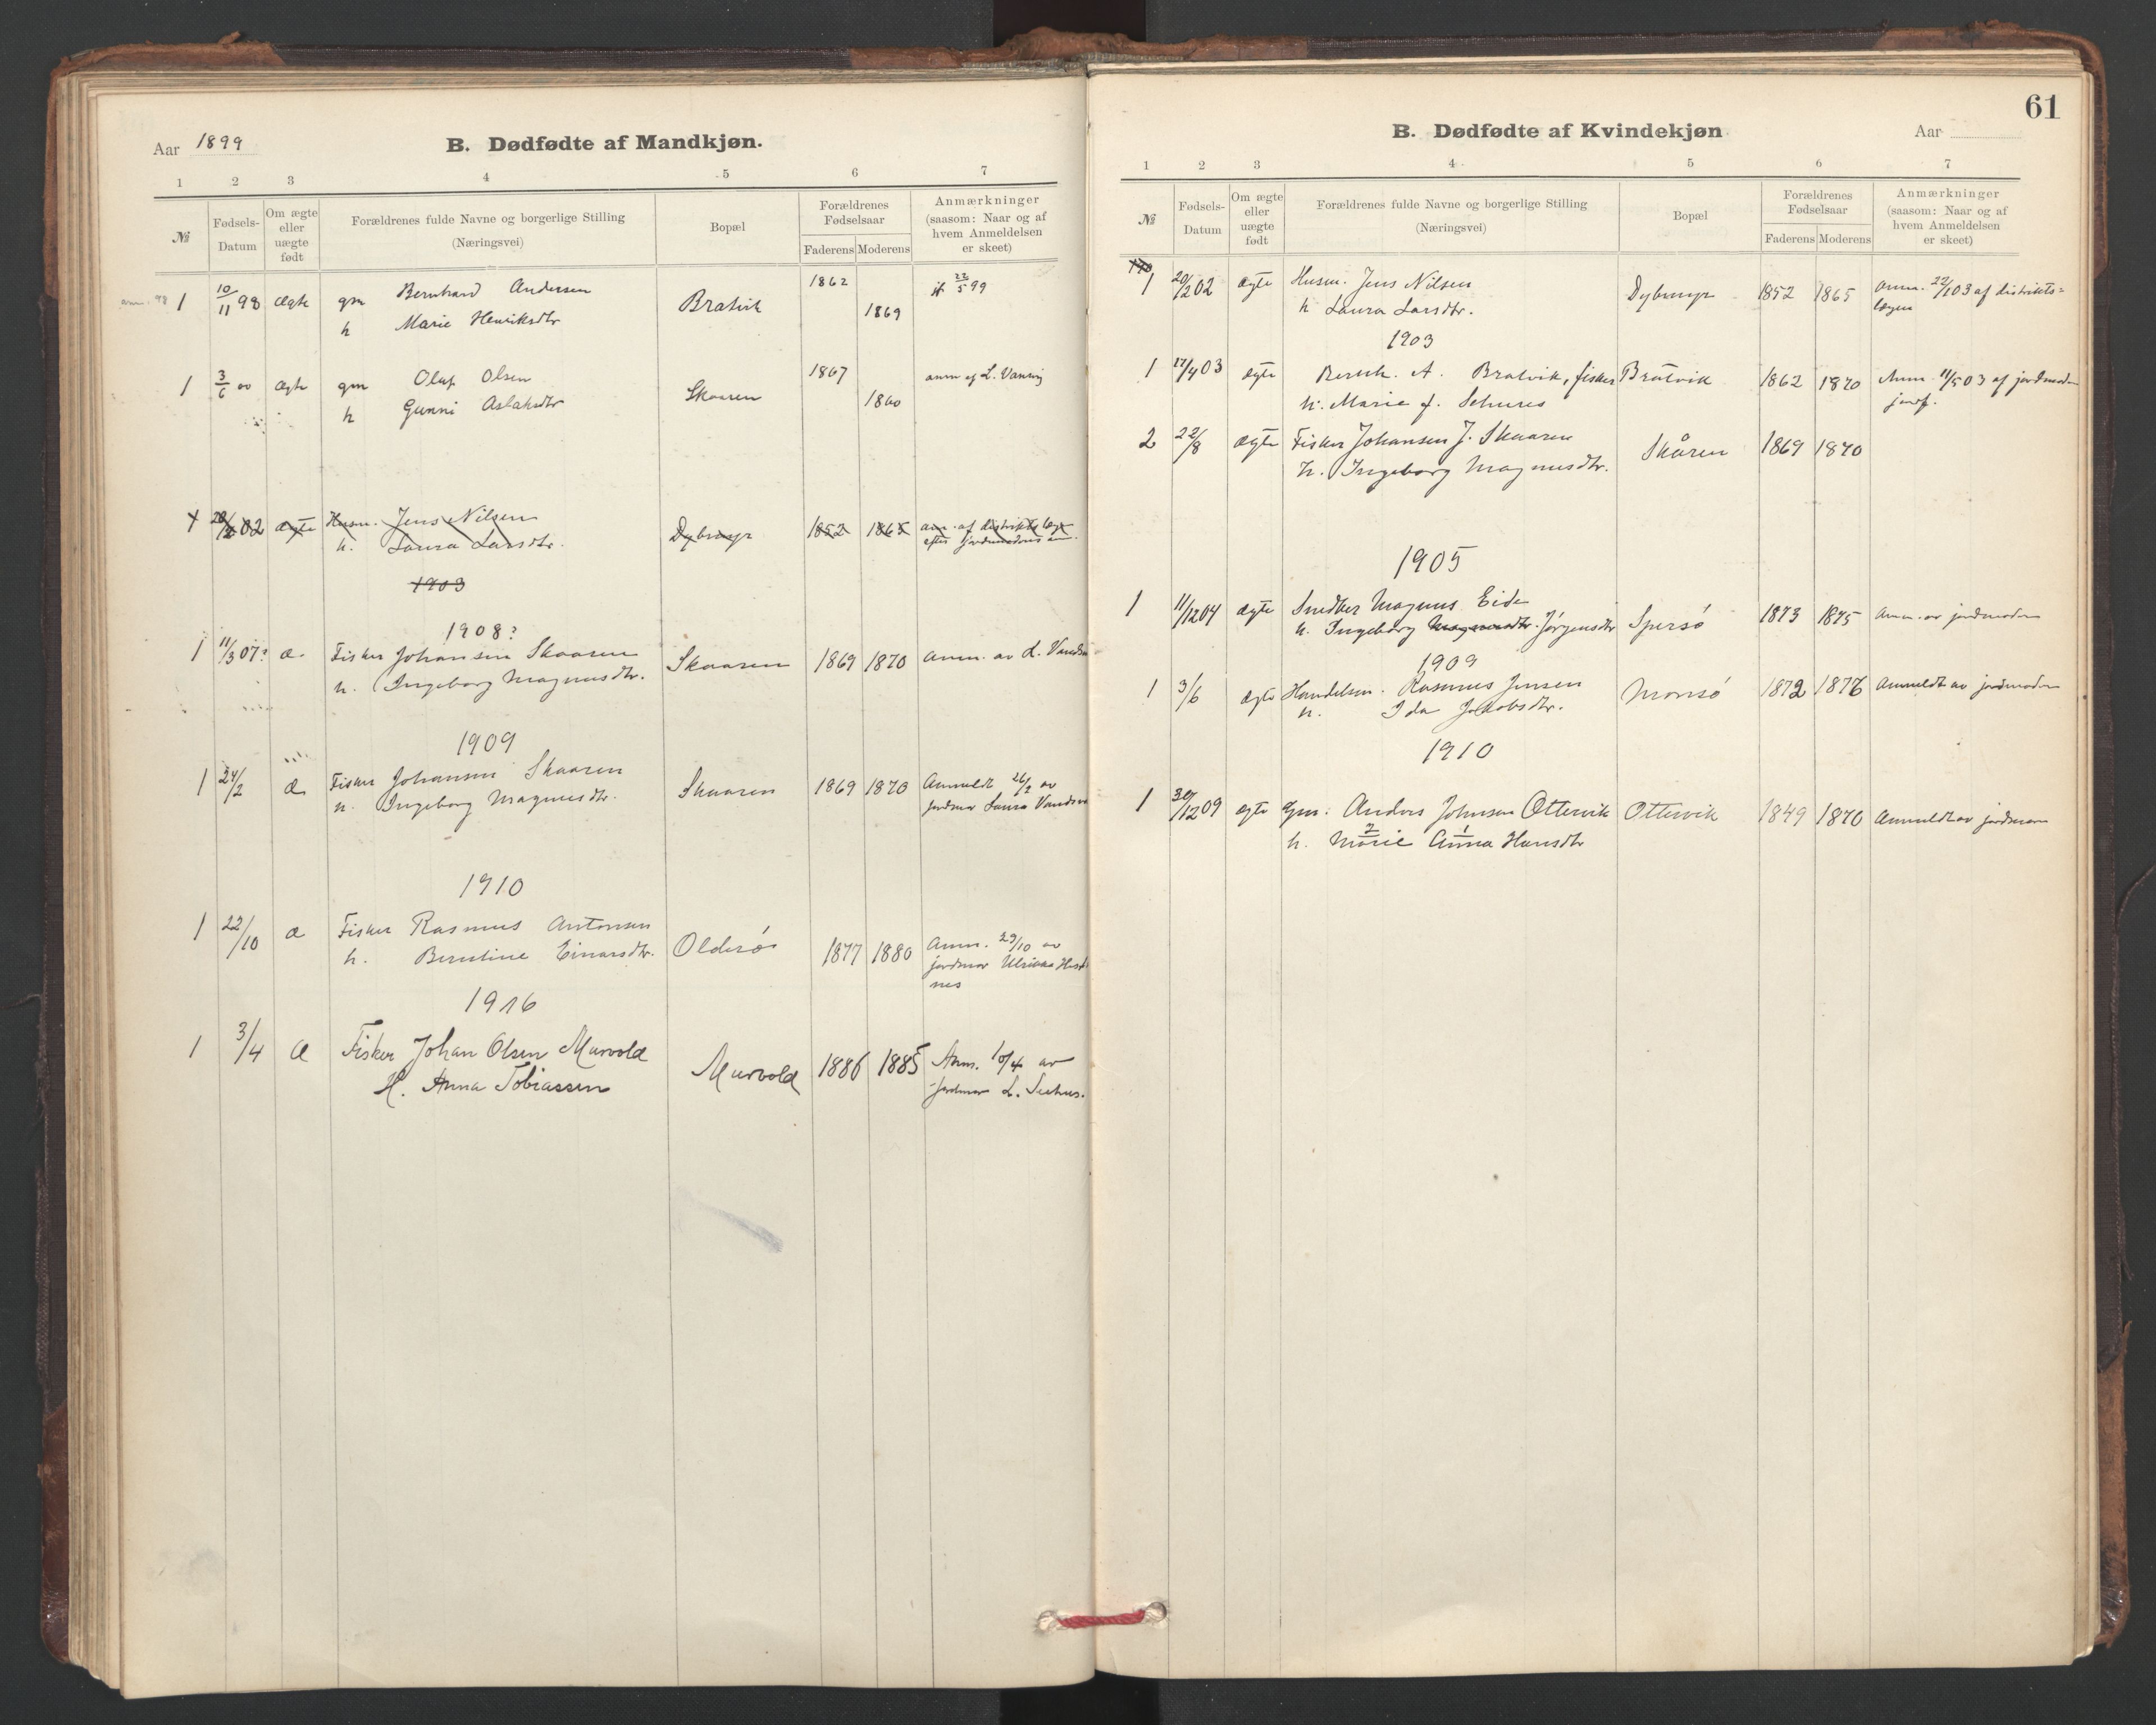 Aar 1899
B. Dødfødte af Mandkjøn.
1 2 3 4 5 6 7
№
Fødsels-Datum
Om ægte eller uægte født
Forældrenes fulde Navne og borgerlige Stilling
(Næringsvei)
Bopæl
Forældrenes Fødselsaar
Faderens Moderens
Anmærkninger
(saasom: Naar og af
hvem Anmeldelsen
er skeet)
1 10/11 98 Ægte gm Bernhard Andersen Bratvik 1862 22/5 99
h Marie Henriksdtr 1869
1 3/6 00 Ægte gm Oluf Olsen Skaaren 1867 anm af L.
h Gunni Aslaksdtr 1860
1 20/2 02 ægte Husm. Jens Nilsen 1852 1865 anm. af distriktslæge
h. Laura Larsdtr. efter jordmoderens an.
1903
1908?
1 11/3 07? æ. Fisker Johansen Skaaren Skaaren 1869 1870 anm. av L.
h. Ingeborg Magnusdtr.
1909
1 24/2 æ Fisker Johansen Skaaren Skaaren 1869 1870 Anmeldt 26/2 av
h. Ingeborg Magnusdtr. jordmor Laura
1910
1 22/10 æ Fisker Rasmus Antonsen Olderø 1877 1880 Anm. 29/10 av
h. Berntine Einarsdtr. jordmor
nes
1916
1 3/4 Æ Fisker Johan Olsen Murvold Murvold 1886 1885 Anm. 10/4 av
H. Anna Tobiassen Jordmor L.
61
B. Dødfødte af Kvindekjøn
Aar
1 2 3 4 5 6 7
№
Fødsels-Datum
Om ægte eller uægte født
Forældrenes fulde Navne og borgerlige Stilling
(Næringsvei)
Bopæl
Forældrenes Fødselsaar
Faderens Moderens
Anmærkninger
(saasom: Naar og af
hvem Anmeldelsen
er skeet)
1 20/2 02 ægte Husm. Jens Nilsen 1852 1865 anm. 22/1 03 af distrikts=
h Laura Larsdtr. lægen
1903
1 17/4 03 ægte Bernh. A. Bratvik, fisker Bratvik 1862 1870 Anm. 11/5 03 af jordmoder
h. Marie f.
2 22/8 ægte Fisker Johansen J. Skaaren Skåren 1869 1870
h. Ingeborg Magnusdtr.
1905
1 11/12 04 ægte Snedker Magnus Eide Spersø 1873 1875 Anm. av jordmoder
h. Ingeborg Magnusdtr. Jørgensdtr
1909
1 3/6 ægte Handelsm. Rasmus Jensen Monsø 1872 1876 Anmeldt av jordmoder
h. Ida Jakobsdtr.
1910
1 30/12 09 ægte Gm. Anders Johnsen Ottervik Ottervik 1849 1870 Anmeldt av jordmor
2 1
h. Marie Anna Hansdtr